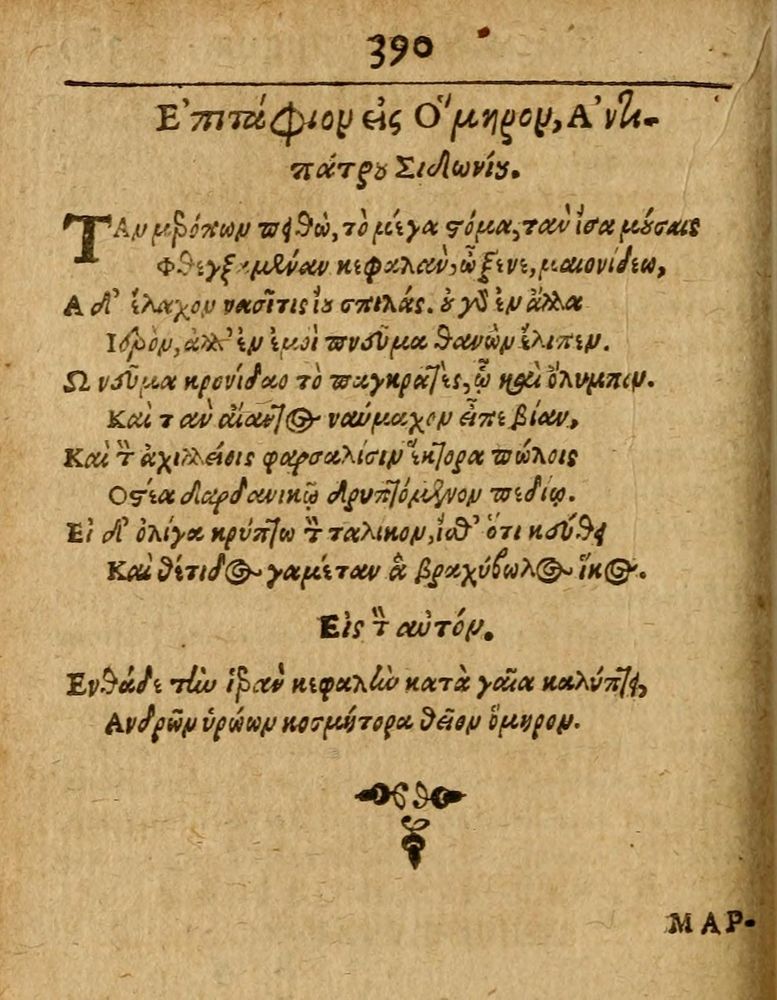 390
Ἐπιτάφιον εἰς Ὅμηρον, Ἀντι-
πάτρου Σιδωνίου.
ΤΑν μερόπων πειθὼ, τὸ μέγα στόμα, τὰν ἴσα μούσαις
Φθεγξαμέναν κεφαλὰν, ὦ ξεῖνε, μαιονίδεω,
Α δ' ἔλαχον νασῖτις ἴου σπιλάς. οὐ γὸ ἐν ἄλλα
Ιερὸν, ἀλλ' ἐν ἐμοὶ πνεῦμα θανὼν ἔλιπεν.
Ω νεῦμα κρονίδαο τὸ παγκρατὲς, ᾧ καὶ ὄλυμπον.
Καὶ τὰν αἴαντος ναύμαχον εἶπε βίαν,
Καὶ τὸν ἀχιλλείοις φαρσαλίσιν ἕκτορα πώλοις
Οστέα δαρδανικῷ δρυπτόμενον πεδίῳ.
Εἰ δ' ὀλίγα κρύπτω τὸν ταλίκον, ἴσθ' ὅτι κεύθει
Καὶ θέτιδος γαμέταν ἁ βραχύβωλος ἴκος.
Εἰς τὸν αὐτόν.
Ενθάδε τὴν ἱερὰν κεφαλὴν κατὰ γαῖα καλύπτει,
Ἀνδρῶν ὑρώων κοσμήτορα θεῖον ὅμηρον.
ΜΑΡ-